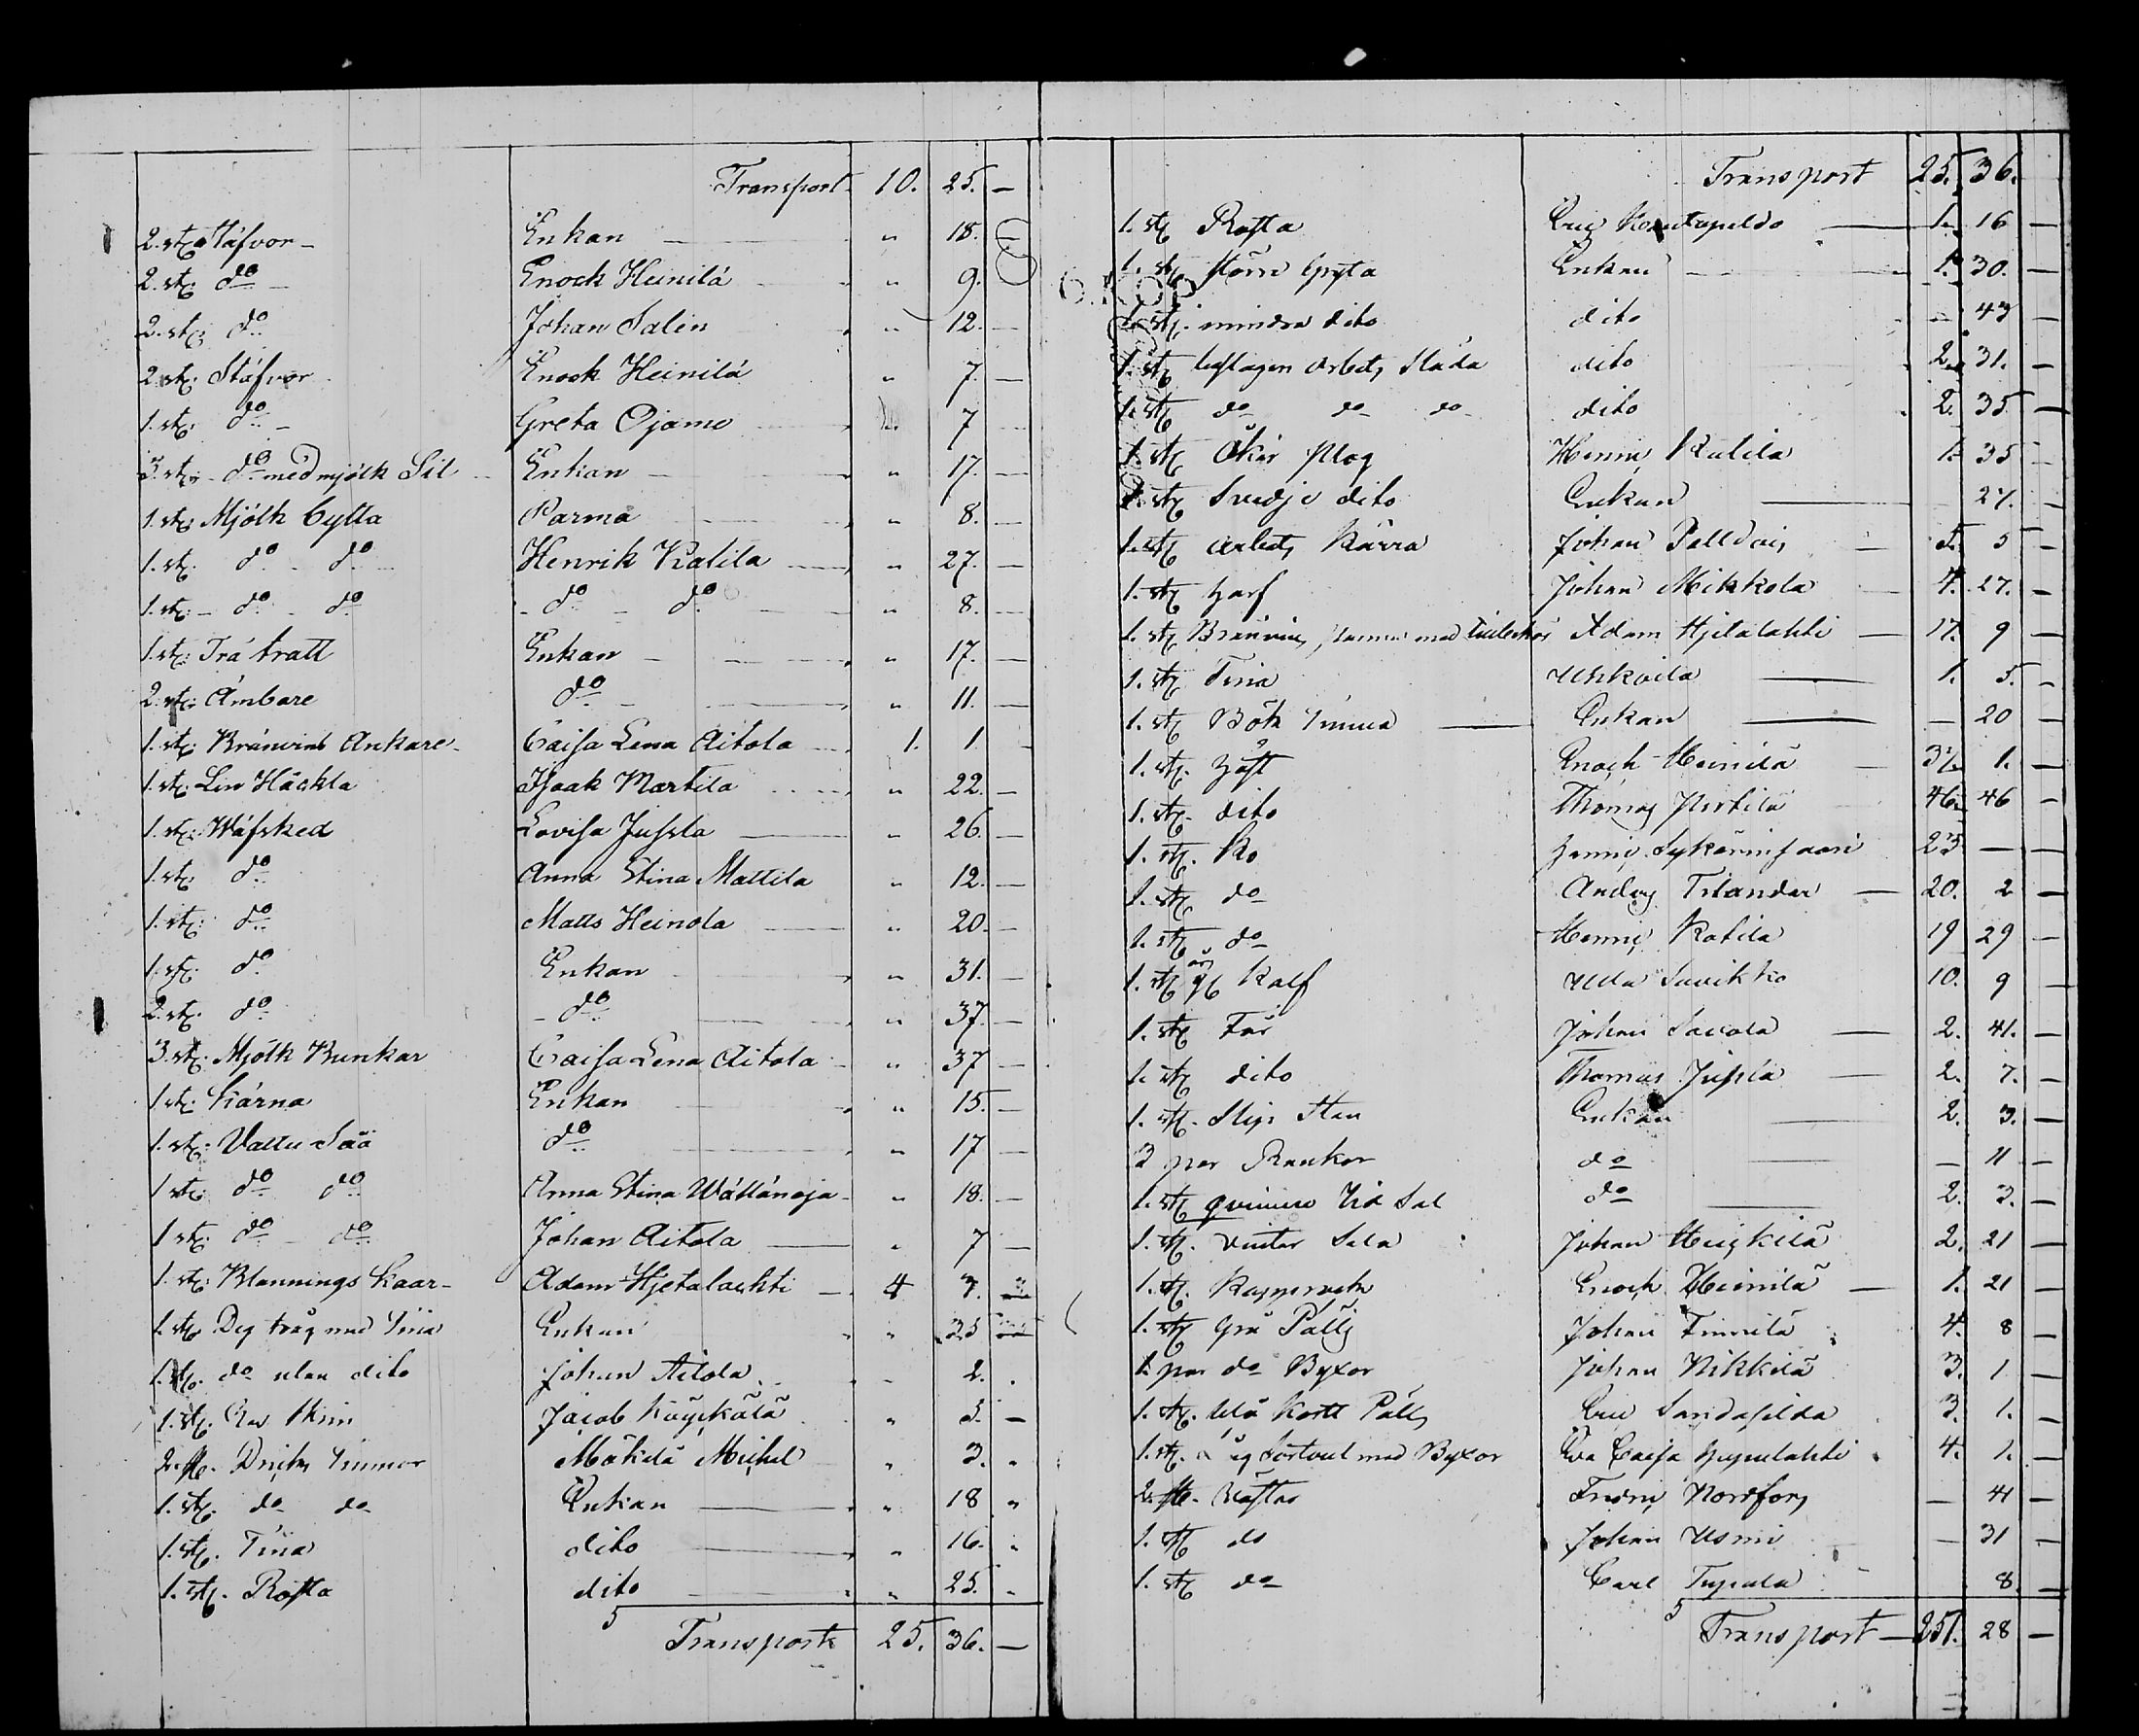 Transport 10. 25. —
2. st. Stäfvor — Enkan — " 18. —
2. st. do — Enock Heinilä " 9. —
2. st. do Johan Salin " 12. —
2. st. Stäfvor Enock Heinilä " 7. —
1. st. do — Greta Ojamo " 7
3. st. do med mjölk Sil Enkan — " 17. —
1. st. Mjölk Bytta Parma " 8. —
1. st. do do Henrik Katila " 27. —
1. st. do do do do " 8. —
1. st. Trä tratt Enkan — " 17. —
2. st. Ämbare do " 11. —
1. st. Bränvins Ankare Caisa Lena Aitola 1. 1. —
1. st. Lin Häckla Isaak Martila " 22. —
1. st. Wäfsked Lovisa Jussla " 26. —
1. st. do Anna Stina Mattila " 12. —
1. st. do Matts Heinola " 20. —
1. st. do Enkan " 31. —
2. st. do do " 37. —
3. st. Mjölk Bunkar Caisa Lena Aitola " 37 —
1. st. Kärna Enkan " 15. —
1. st. Vattu Såå do " 17 —
1 st. do do Anna Stina " 18. —
1 st. do do Johan Aitola " 7 —
1. st. Blannings Kaar Adam Hjetalachti — 4 7. "
1. st. Deg tråg med Tina Enkan " 35
1. st. do utan dito Johan Aitola " 2.
1. st. Jacob " 3. —
2. st. Dricks Tunnor Mäkelä Michel " 3. "
1. st. do do Enkan " 18 "
1. st. Tina dito " 16. "
1. st. Rosta dito " 25. "
Transport 25. 36. —
Transport 25. 36.
1. st. Rosta Eric 1. 16 —
1. st. större Gryta Enkan 1. 30. —
1. st. mindre dito dito — 43 —
1. st. beslagen Arbets Släda dito 2. 31. —
1. st. do do do dito 2. 35 —
1. st. Åker Plog Henric Katila 1. 35 —
1. st. Svedje dito Enkan 27. —
1. st. Arbets Kärra Johan 5. 5 —
1. st. Harf Johan Mikkola 4. 27. —
1. st. Bränvins panna med Adam Hjetalahti — 17. 9 —
1. st. Tina Uhkoila 1. 5. —
1. st. Bök Tunna Enkan — 20 —
1. st. Häst Enoch Heinilä 37. 1. —
1. st. dito Thomas Pertilä 46. 46 —
1. st. Ko Henric 23 — —
1. st. do Anders Tilander — 20. 2 —
1. st. do Henric Katila 19 29 —
1. st. Kalf Ulla Savikko 10. 9 —
1. st. Får Johan Savola — 2. 41. —
1. st. dito Thomas Jussla — 2. 7. —
1. st. Slip Sten Enkan 2. 3. —
3 par Rankor do — 11 —
1. st. qvinne Rid Sal do 2. 3. —
1. st. Vinter Sela Johan Heickilä 2. 21 —
1. st. Enoch Heinilä — 1. 21 —
1. st. Grå Päls Johan Finnilä 4. 8 —
1. par do Byxor Johan Nikkilä 3. 1 —
1. st. blå Kort Päls Eric 3. 1. —
1. st. Sortout med Byxor Eva Caisa 4. 1. —
2. st. Västar Fredric Nordfors — 41 —
1. st. do Johan — 31 —
1. st. do Carl 8. —
Transport — 251. 28 —